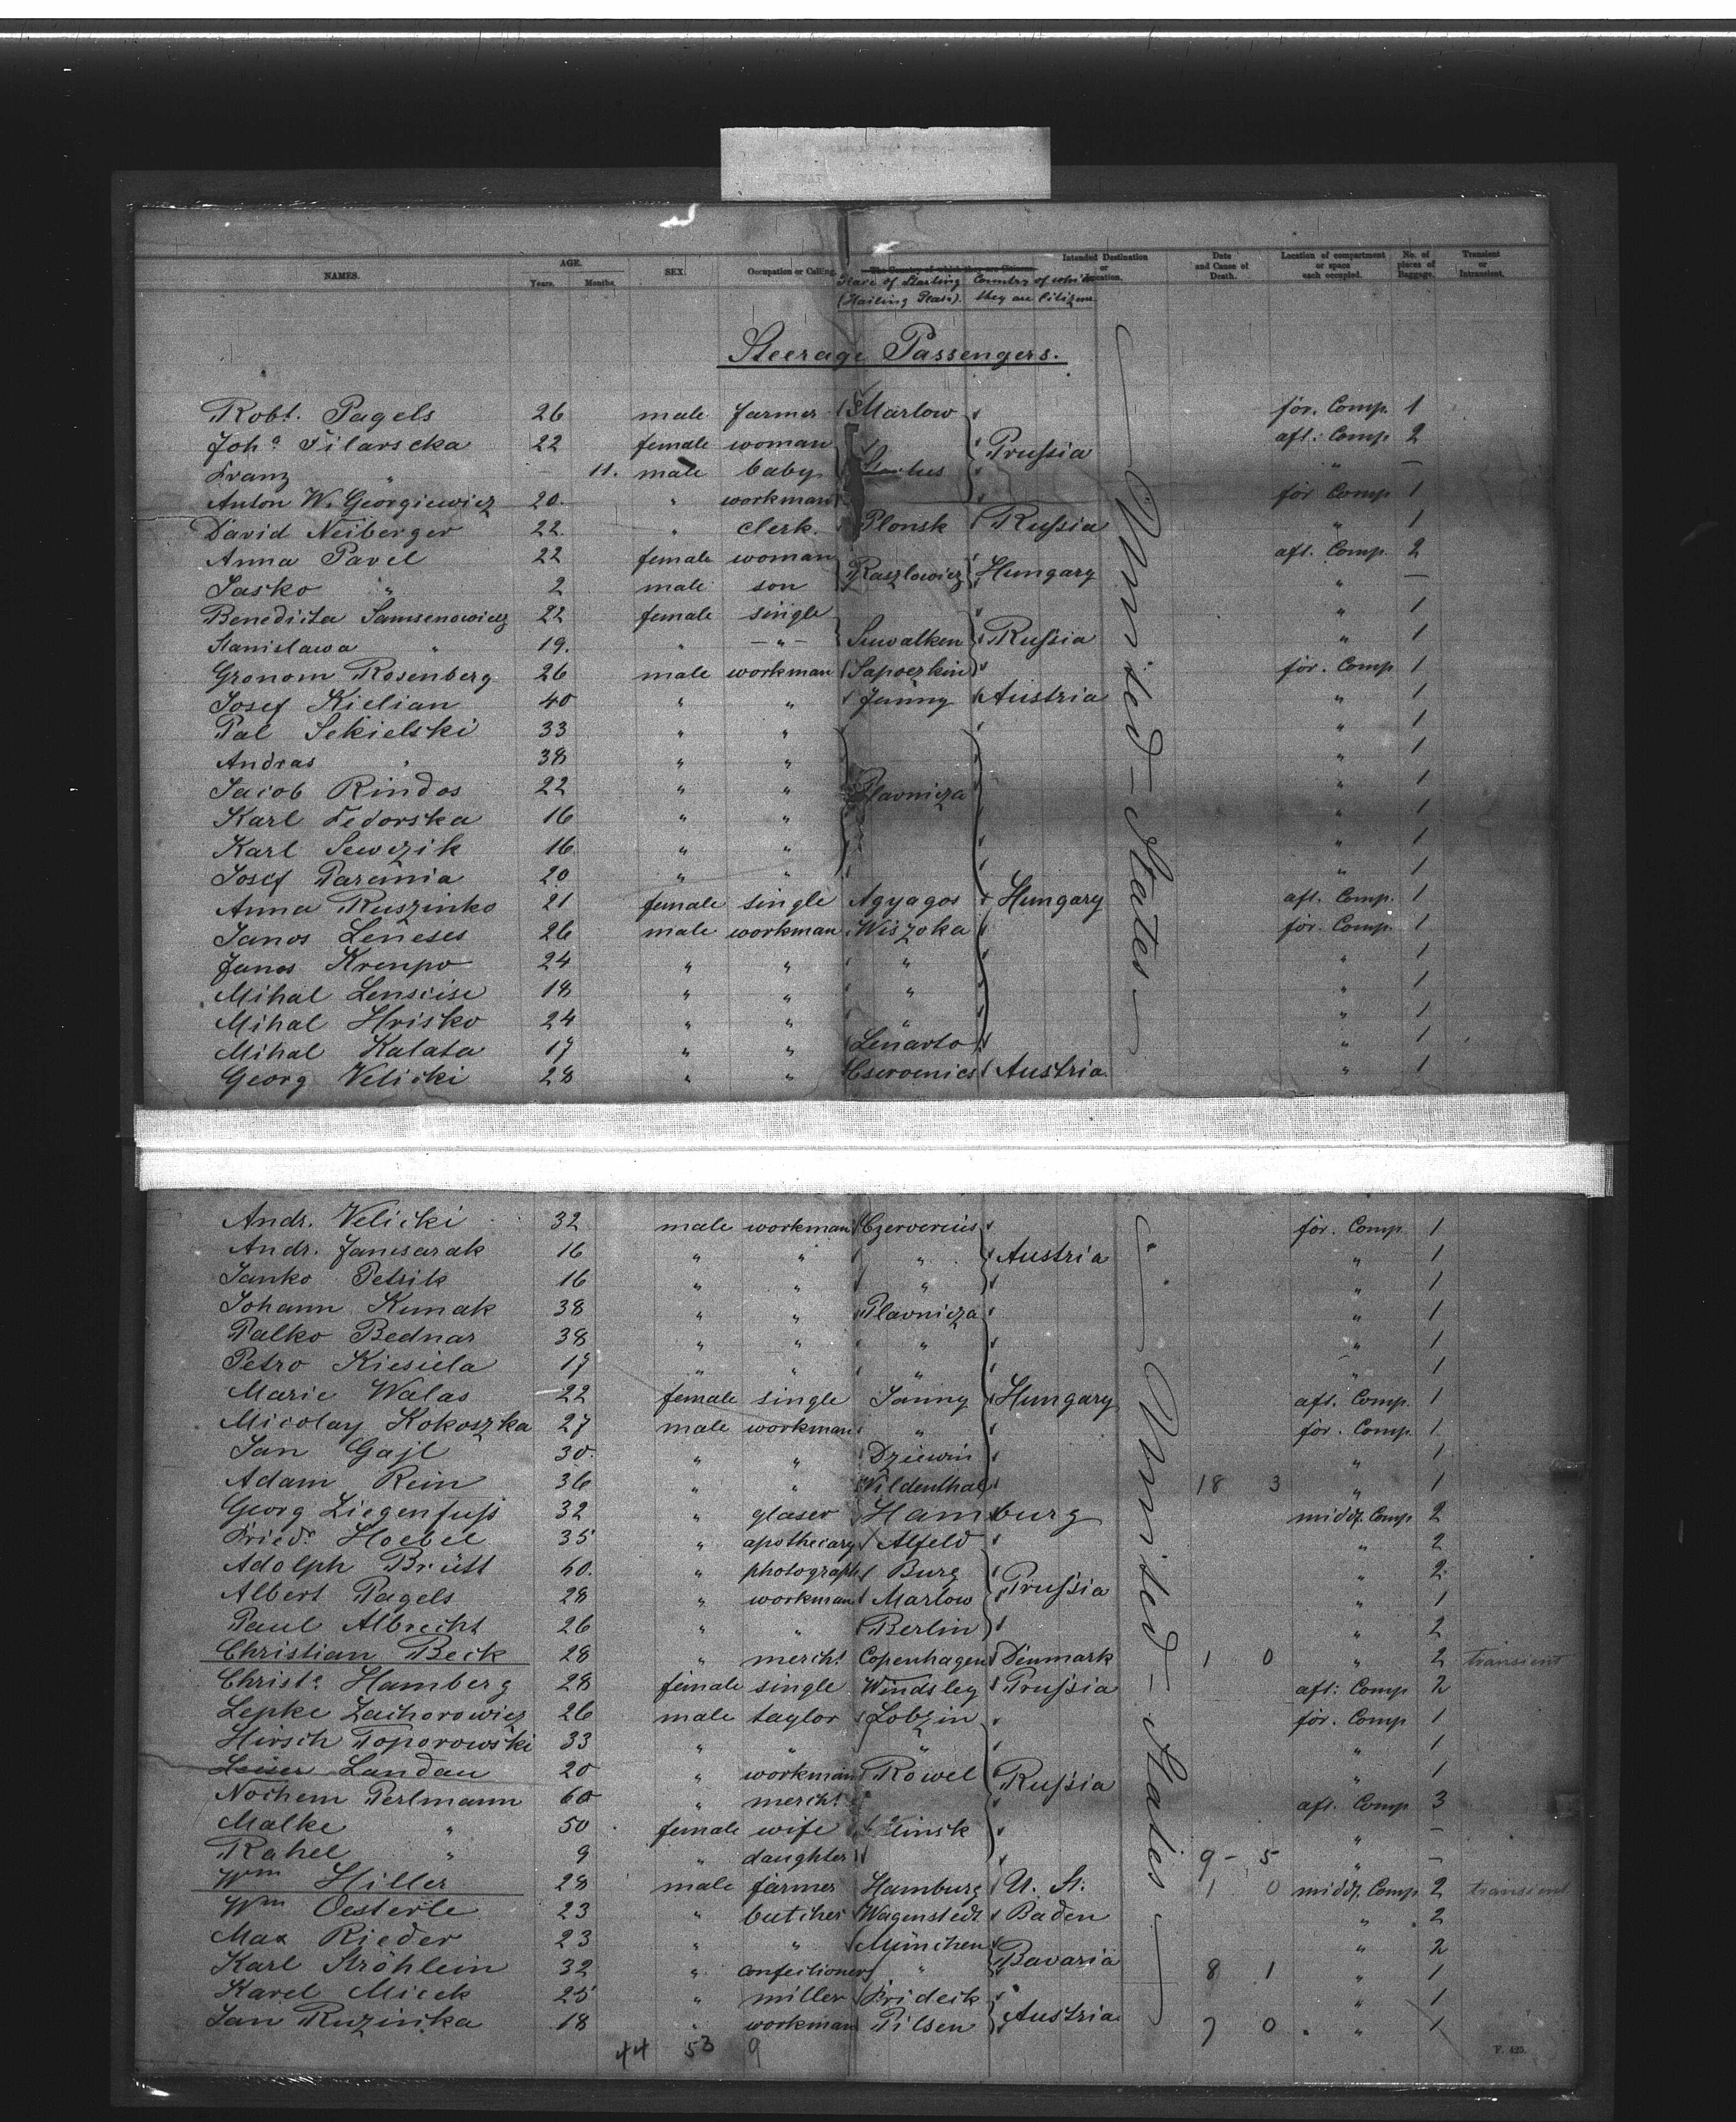 NAMES. AGE. Years. Months. SEX. Occupation or Calling. The Country of which they are Citizens. Intended Destination or Location. Date and Cause of Death. Location of compartment or space each occupied. No. of pieces of Baggage. Transient or Intransient.
Place of Starting (Hailing Place). Country of which they are Citizens
Steerage Passengers.
Robt. Pagels 26 male farmer Marlow for. Comp. 1
Joha Filarscka 22 female woman Prußia aft. Comp. 2
Franz " 11. male baby " —
Anton W. Georgiewicz 20. " workman for Comp 1
David Neiberger 22. " clerk. Plonsk Rußia " 1
Anna Pavel 22 female woman Raszlowicz Hungary aft. Comp. 2
Jasko " 2 male son " —
Benedicta Samsenowicz 22 female single " 1
Stanislawa " 19. " —"— Suwalken Rußia " 1
Gronom Rosenberg 26 male workman Sapoezkin for. Comp 1
Josef Kielian 40 " " Jenny Austria " 1
Pal Sekielski 33 " " " 1
Andras " 38 " " " 1
Jacob Rindos 22 " " Plavnicza " 1
Karl Fedorska 16 " " " 1
Karl Sewczik 16 " " " 1
Josef Paremia 20 " " " 1
Anna Ruszinko 21 female single Agyagos Hungary aft. Comp. 1
Janos Leneses 26 male workman Wiszoka for. Comp. 1
Janos Krenpo 24 " " " " 1
Mihal Lenscise 18 " " " " 1
Mihal Hrisko 24 " " " " 1
Mihal Kalata 17 " " Lenarto " 1
Georg Velicki 28 " " Cservenics Austria. " 1
United States
Andr. Velicki 32 male workman Czervenics for. Comp. 1
Andr. Jamsarak 16 " " " Austria " 1
Janko Petrik 16 " " " " 1
Johann Kunak 38 " " Plavnicza " 1
Palko Bednar 38 " " " " 1
Petro Kiesiela 17 " " " " 1
Marie Walas 22 female single Janny Hungary aft. Comp. 1
Micolay Kokoszka 27 male workman " for. Comp. 1
Jan Gajl 30. " " Dziewin " 1
Adam Rein 36 " " Wildenthal 18 3 " 1
Georg Ziegenfuß 32 " glaser Hamburg middl. Comp. 2
Friedr. Hoebel 35 " apothecary Alfeld " 2
Adolph Brütt 40. " photograph Burg Prußia " 2
Albert Pagels 28 " workman Marlow " 1
Paul Albrecht 26 " " Berlin " 2
Christian Beck 28 " mercht Copenhagen Denmark 1 0 " 2 transient
Christe Hamberg 28 female single Windsley Prußia aft: Comp 2
Lepke Zachorowicz 26 male taylor Lobzin for. Comp 1
Hirsch Toporowski 33 " " " " 1
Leiser Landau 20 " workman Kowel Rußia " 1
Nochem Perlmann 60 " mercht aft. Comp 3
Malke " 50 female wife Minsk " —
Rahel " 9 " daughter 9 – 5 " —
Wm Hiller 28 male farmer Hamburg U. St. 1 0 middl. Comp. 2 transient
Wm Oesterle 23 " butcher Wagenstedt Baden " 2
Max Rieder 23 " " München " 2
Karl Ströhlein 32 " confectioner " Bavaria 8 1 " 1
Karel Micek 25 " miller Frideck " 1
Jan Ruzinka 18 " workman Pilsen Austria 7 0 " 1
United States
44 53 9
F. 425.